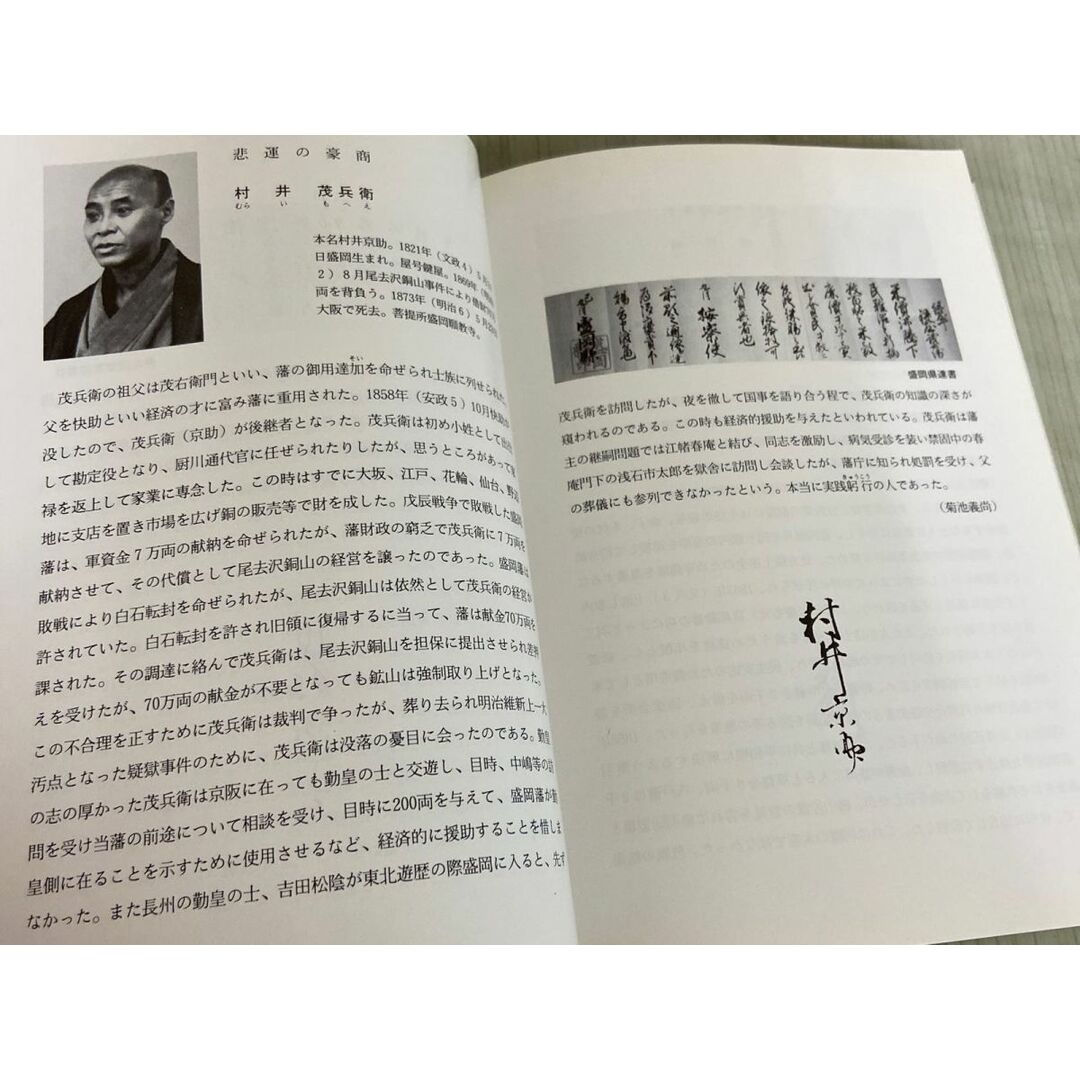 悲運の豪商
村井 茂兵衛
むら い も へ え
本名村井京助。1821年（文政4）5月
日盛岡生まれ。屋号鍵屋。1869年（明治
2）8月尾去沢銅山事件により借財
両を背負う。1873年（明治6）5月
大阪で死去。菩提所盛岡願教寺。
茂兵衛の祖父は茂右衛門といい、藩の御用達加を命ぜられ士族に列せられた
そい
父を快助といい経済の才に富み藩に重用された。1858年（安政5）10月快助が
没したので、茂兵衛（京助）が後継者となった。茂兵衛は初め小姓として出仕
して勘定役となり、厨川通代官に任ぜられたりしたが、思うところがあって家
禄を返上して家業に専念した。この時はすでに大坂、江戸、花輪、仙台、野辺
地に支店を置き市場を広げ銅の販売等で財を成した。戊辰戦争で敗戦した盛岡
藩は、軍資金7万両の献納を命ぜられたが、藩財政の窮乏で茂兵衛に7万両を
献納させて、その代償として尾去沢銅山の経営を譲ったのであった。盛岡藩は
敗戦により白石転封を命ぜられたが、尾去沢銅山は依然として茂兵衛の経営が
許されていた。白石転封を許され旧領に復帰するに当って、藩は献金70万両を
課された。その調達に絡んで茂兵衛は、尾去沢銅山を担保に提出させられ差押
えを受けたが、70万両の献金が不要となっても鉱山は強制取り上げとなった。
この不合理を正すために茂兵衛は裁判で争ったが、葬り去られ明治維新上一大
汚点となった疑獄事件のために、茂兵衛は没落の憂目に会ったのである。勤皇
の志の厚かった茂兵衛は京阪に在っても勤皇の士と交遊し、目時、中嶋等の訪
問を受け当藩の前途について相談を受け、目時に200両を与えて、盛岡藩が勤
皇側に在ることを示すために使用させるなど、経済的に援助することを惜しま
なかった。また長州の勤皇の士、吉田松陰が東北遊歴の際盛岡に入ると、先ず
盛岡県達書
茂兵衛を訪問したが、夜を徹して国事を語り合う程で、茂兵衛の知識の深さが
窺われるのである。この時も経済的援助を与えたといわれている。茂兵衛は藩
主の継嗣問題では江幡春庵と結び、同志を激励し、病気受診を装い禁固中の春
庵門下の浅石市太郎を獄舎に訪問し会談したが、藩庁に知られ処罰を受け、父
の葬儀にも参列できなかったという。本当に実践躬行の人であった。
きゅうこう
（菊池義尚）
村井京助